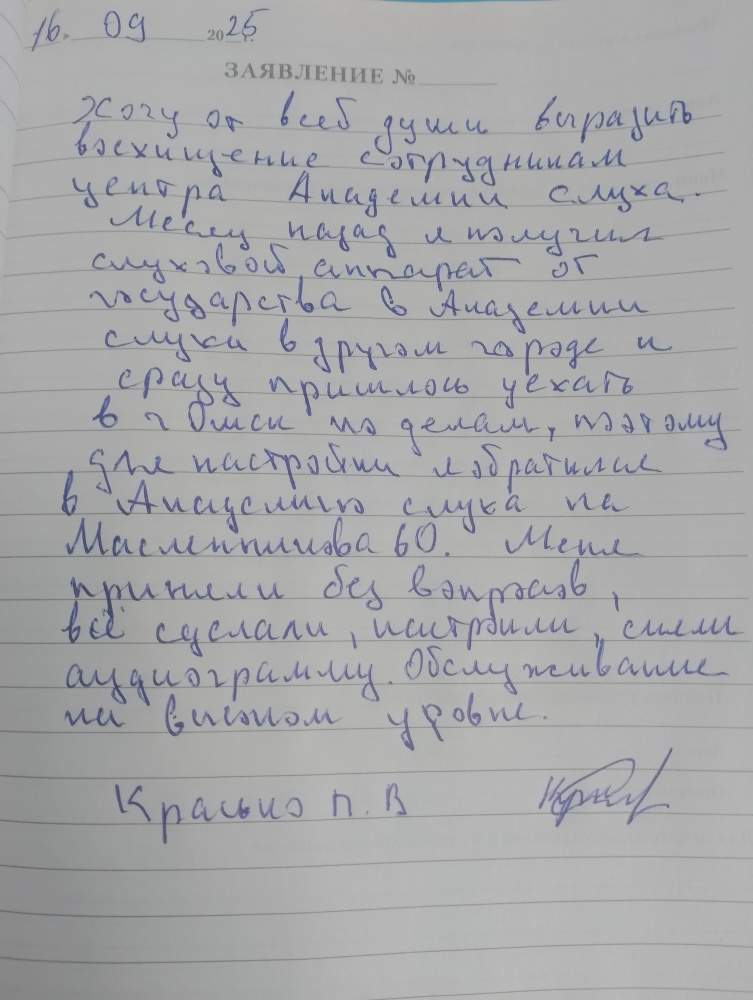 16. 09 2025
ЗАЯВЛЕНИЕ №
Хочу от всей души выразить
восхищение сотрудникам
центра Академии слуха.
Месяц назад я получил
слуховой аппарат от
государства в Академии
слуха в другом городе и
сразу пришлось уехать
в г Омск по делам, поэтому
для настройки я обратился
в Академию слуха на
Масленникова 60. Меня
приняли без вопросов,
всё сделали, настроили, сняли
аудиограмму. Обслуживание
на высоком уровне.
П. В